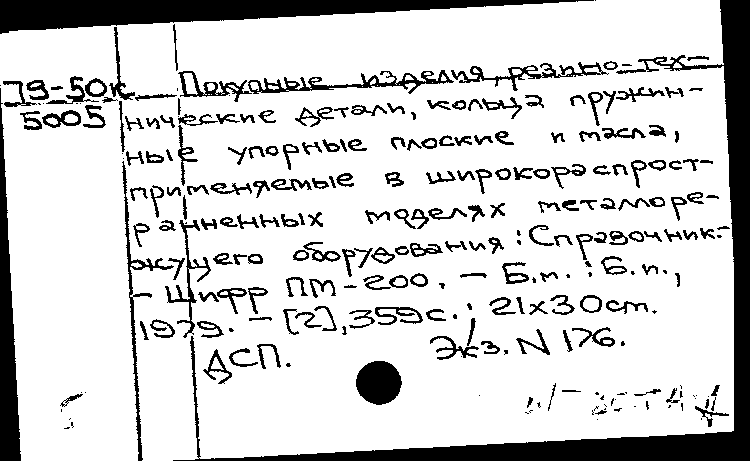 79-50к Покупные изделия, резино-тех-
5005 нические детали, кольца пружин-
ные упорные плоские и масла,
применяемые в широкораспрост-
раненных моделях металлоре-
жущего оборудования: Справочник.-
- Шифр ПМ-200. - Б.м. : Б.и.,
1979. - [2], 359 с.; 21x30 cm.
ДСП. Экз. N 176.